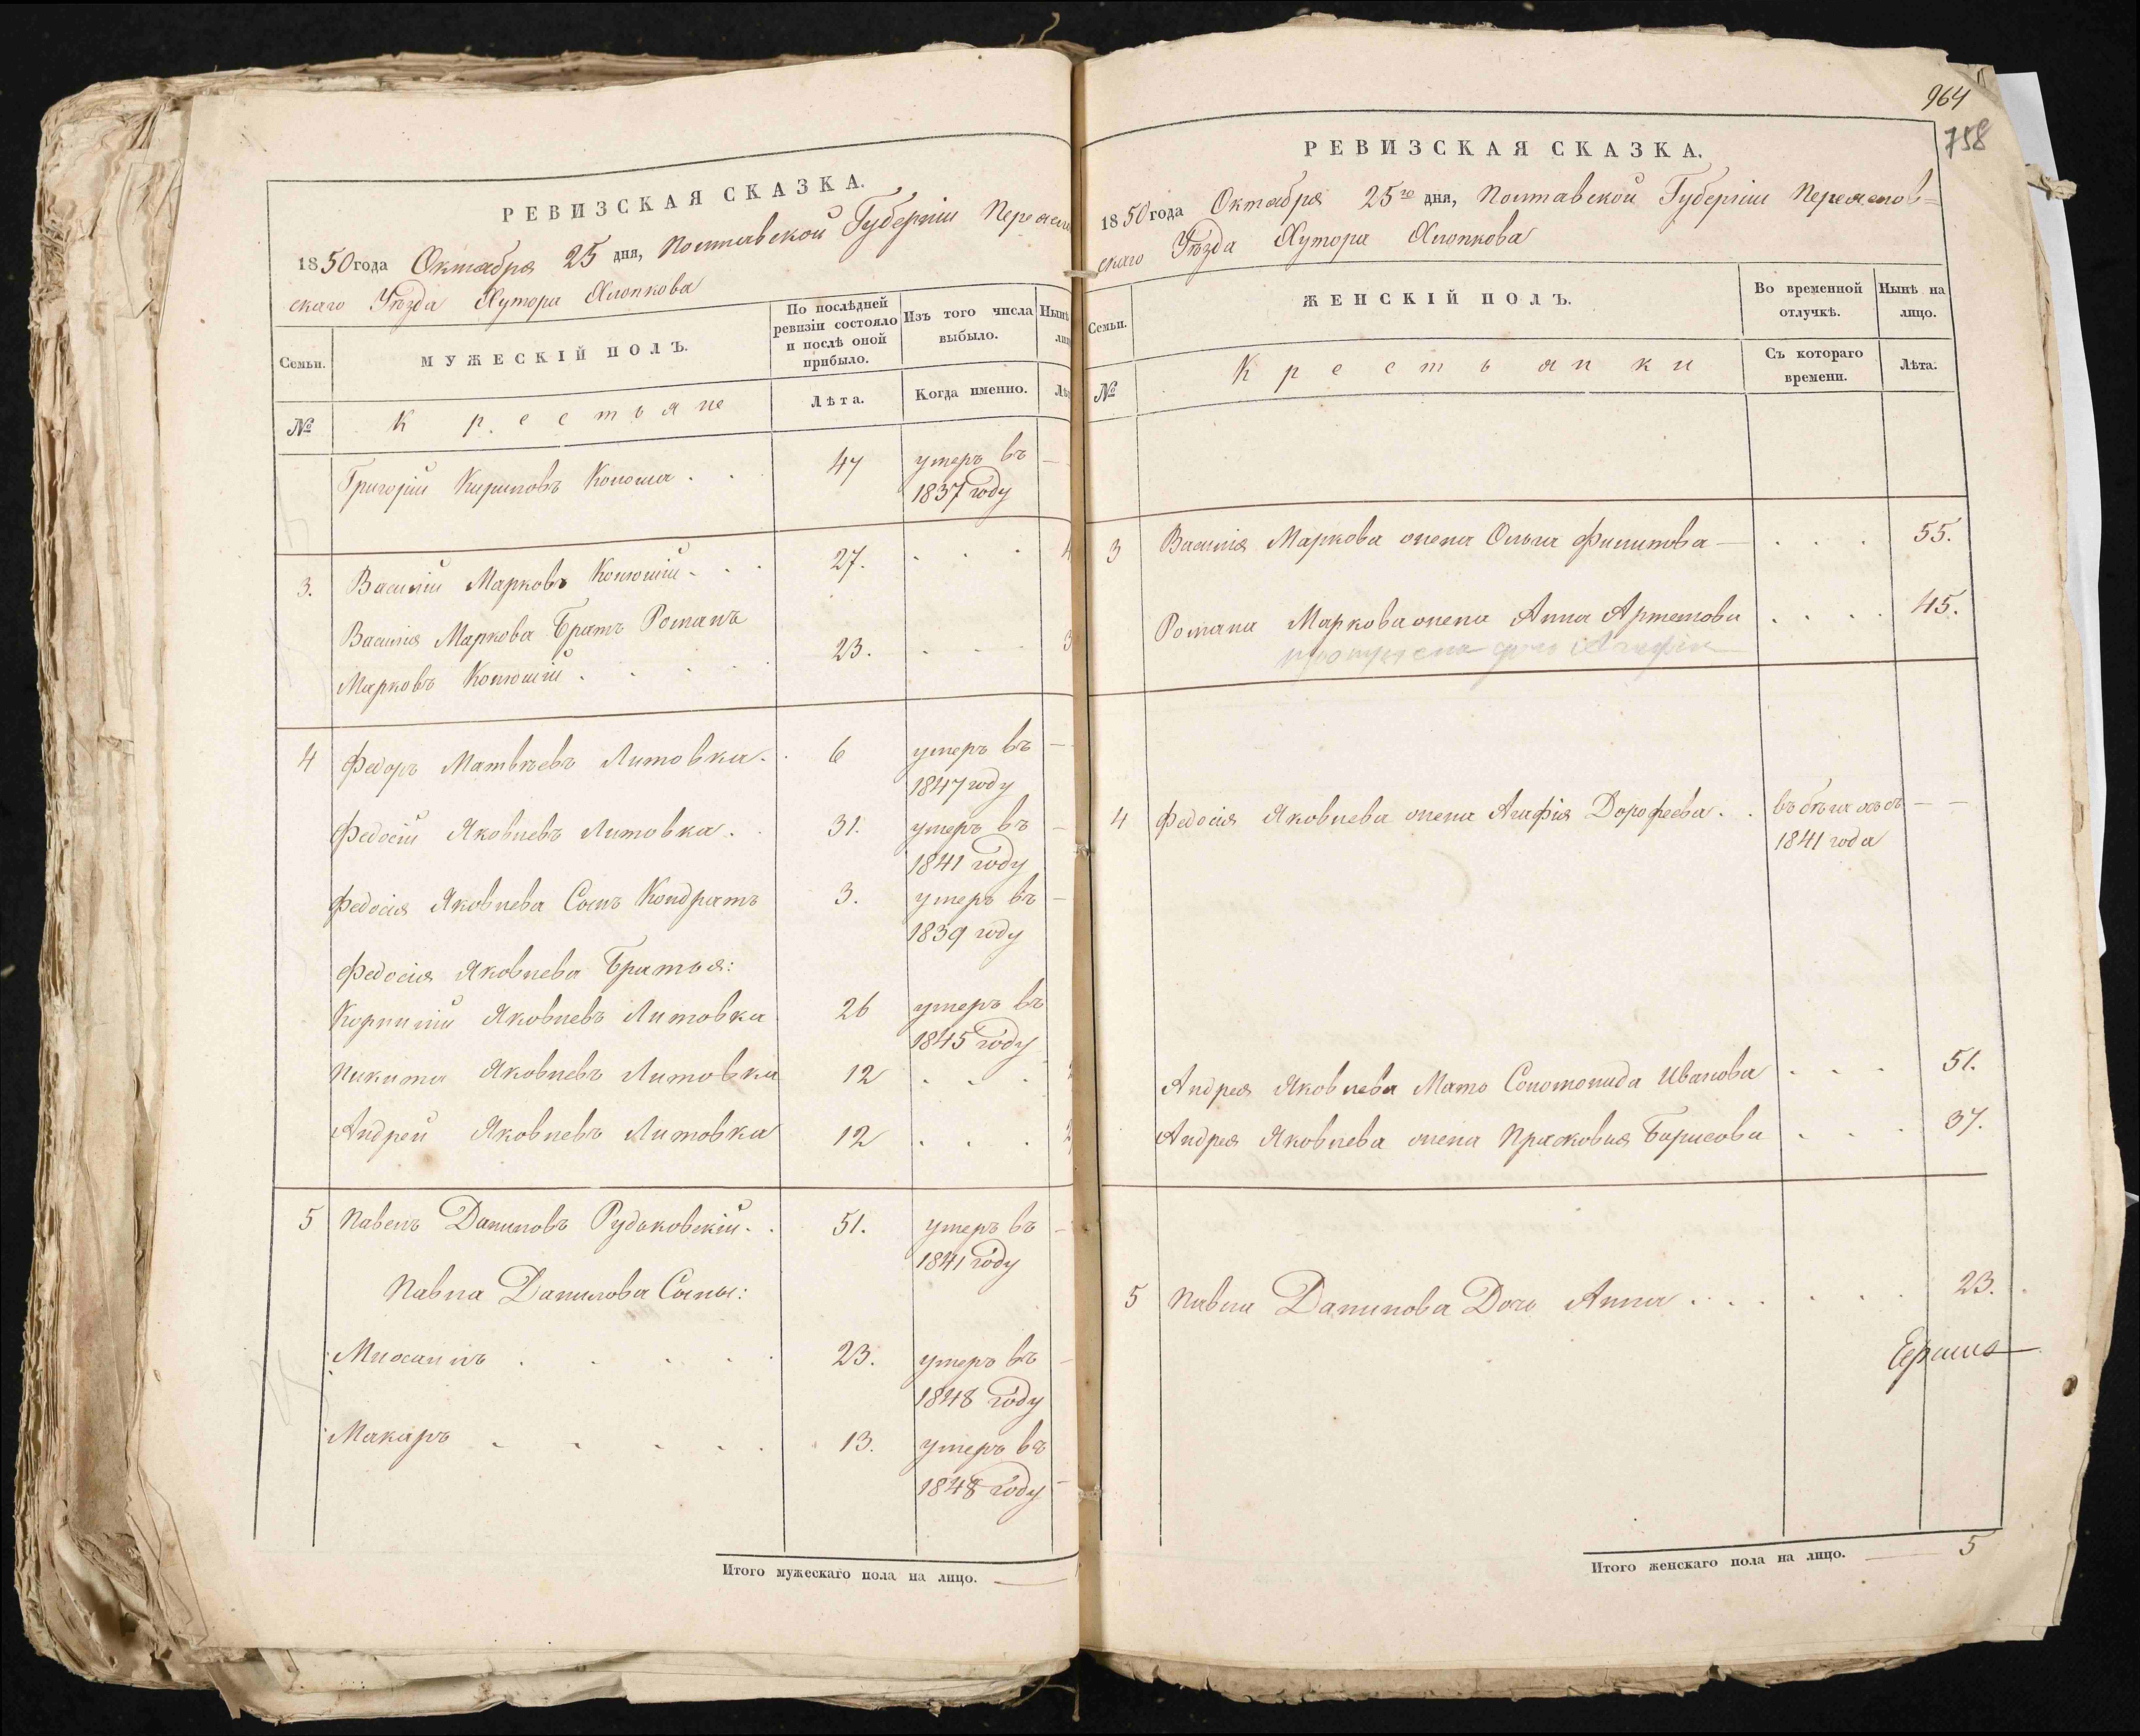 РЕВИЗСКАЯ СКАЗКА.
1850 года Октября 25 дня, Полтавской Губерніи Переясл
скаго Уѣзда Хутора Хлопкова
Семьи.
МУЖЕСКІЙ ПОЛЪ.
По послѣдней
ревизіи состояло
и послѣ оной
прибыло.
Изъ того числа
выбыло.
Нынѣ
№
Крестьяне
Лѣта.
Когда именно.
Григорій Кириловъ Конюша . . 47 умеръ въ —
1837 году
3. Василій Марковъ Конюшій . . . 27. . . . 4
Василія Маркова Братъ Романъ
Марковъ Конюшій . . . . 23. . . . 3
4 Федоръ Матвѣевъ Литовка . . 6 умеръ въ —
1847 году
Федосій Яковлевъ Литовка . . 31. умеръ въ —
1841 году
Федосія Яковлева Сынъ Кондратъ 3. умеръ въ —
1839 году
Федосія Яковлева Братья:
Корнилій Яковлевъ Литовка 26 умеръ въ
1845 году
Никита Яковлевъ Литовка 12 . . . 2
Андрей Яковлевъ Литовка 12 . . . 2
5 Павелъ Даниловъ Рудьковскій . . 51. умеръ въ —
1841 году
Павла Данилова Сыны:
Михаилъ . . . . 23. умеръ въ —
1848 году
Макаръ . . . . . 13. умеръ въ
1848 году —
Итого мужескаго пола на лицо. —
964
758
РЕВИЗСКАЯ СКАЗКА.
1850 года Октября 25го дня, Полтавской Губерніи Переяслов=
скаго Уѣзда Хутора Хлопкова
Семьи.
ЖЕНСКІЙ ПОЛЪ.
Во временной
отлучкѣ.
Нынѣ на
лицо.
№
Крестьянки
Съ котораго
времени.
Лѣта.
3 Василія Маркова жена Ольга Филипова — . . . 55.
Романа Маркова жена Анна Артемова . . . . 45.
пропущена дочь Агафія
4 Федосія Яковлева жена Агафія Дорофеева . . въ бѣгахъ съ — —
1841 года
Андрея Яковлева Мать Соломонида Иванова . . . 51.
Андрея Яковлева жена Прасковия Борисова . . . 37.
5 Павла Данилова Дочь Анна . . . . . . 23.
Итого женскаго пола на лицо. — 5